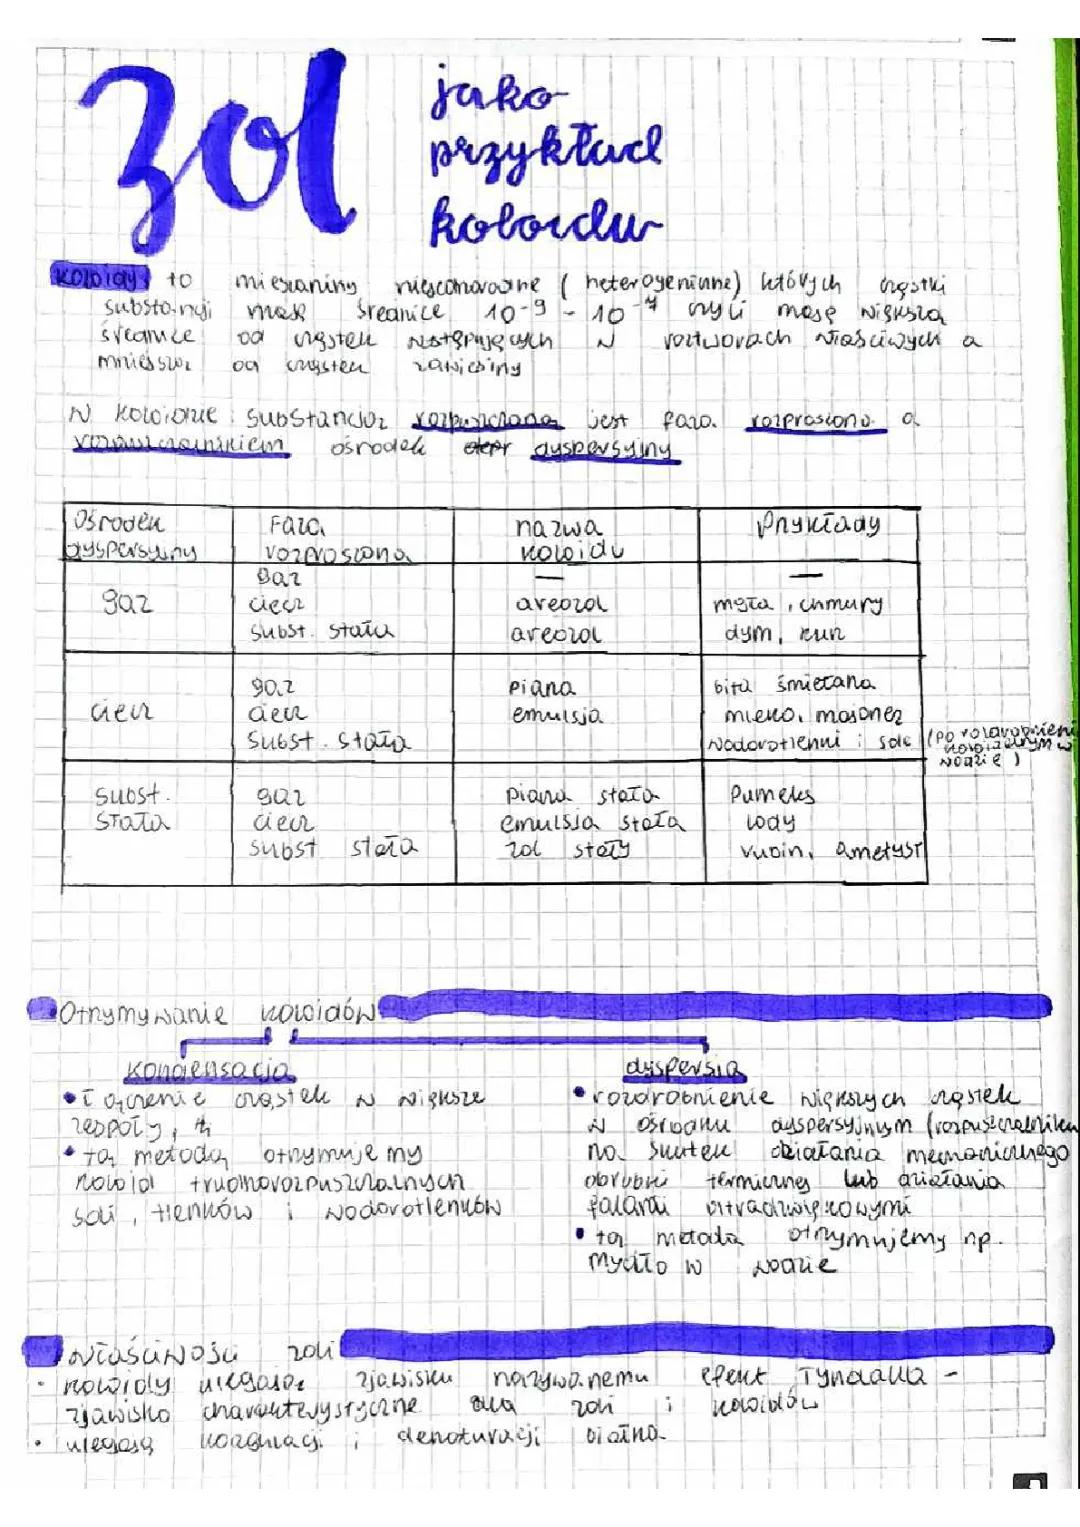 zol
jako
przykład
koloidu
koloidy to mieszaniny niejednorodne (heterogeniczne) których cząstki
substancji mają średnicę 10-9 - 10-7 czyli mają większą
średnicę od cząstek występujących w roztworach właściwych a
mniejszą od cząstek zawiesiny
W koloidzie substancją rozpuszczoną jest faza rozproszona a
rozpuszczalnikiem ośrodek dyspersyjny
Ośrodek dyspersyjny
Faza rozproszona
nazwa koloidu
Przykłady
gaz
gaz — —
ciecz areozol mgła, chmury
subst. stała areozol dym, kurz
ciecz
gaz piana bita śmietana
ciecz emulsja mleko, majonez
subst. stała wodorotlenki i sole (po rozdrobnieniu
koloidalnym w
wodzie)
subst. stała
gaz piana stała pumeks
ciecz emulsja stała lody
subst stała zol stały rubin, ametyst
Otrzymywanie koloidów
kondensacja
• łączenie cząstek w większe
zespoły,
• tą metodą otrzymujemy
koloid trudnorozpuszczalnych
soli, tlenków i wodorotlenków
dyspersja
• rozdrobnienie większych cząstek
w ośrodku dyspersyjnym (rozpuszczalniku
na skutek działania mechanicznego
obróbki termicznej lub działania
falami ultradźwiękowymi
• tą metodą otrzymujemy np.
mydło w wodzie
Właściwości zoli
· koloidy ulegają zjawisku nazywanemu efekt Tyndalla -
zjawisko charakterystyczne dla zoli i koloidów
· ulegają koagulacji i denaturacji białka